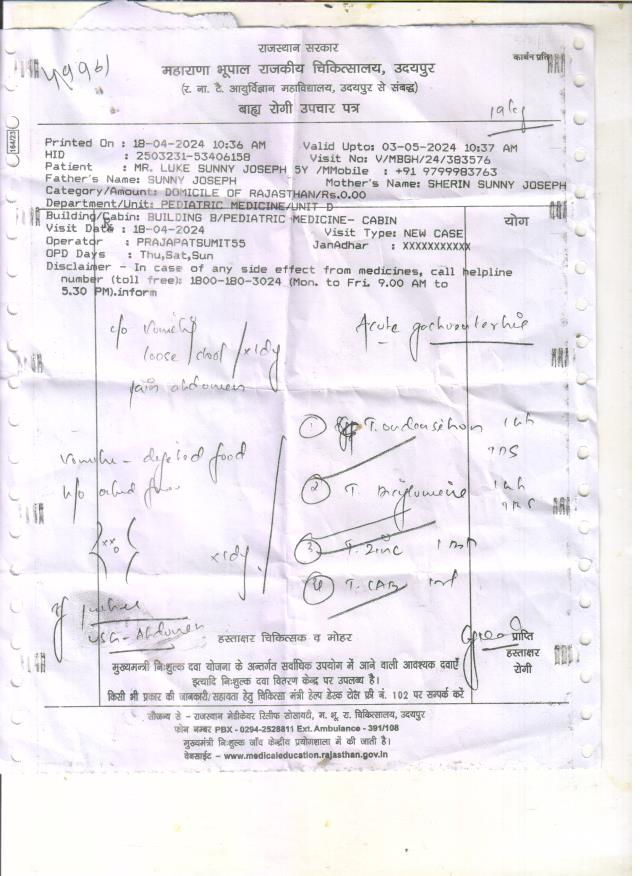 राजस्थान सरकार
कार्बन प्रति
महाराणा भूपाल राजकीय चिकित्सालय, उदयपुर
(र. ना. टै. आयुर्विज्ञान महाविद्यालय, उदयपुर से संबद्ध)
बाह्य रोगी उपचार पत्र
164/23
Printed On : 18-04-2024 10:36 AM Valid Upto: 03-05-2024 10:37 AM
HID : 2503231-53406158 Visit No: V/MBGH/24/383576
Patient : MR. LUKE SUNNY JOSEPH 5Y /MMobile : +91 9799983763
Father's Name: SUNNY JOSEPH Mother's Name: SHERIN SUNNY JOSEPH
Category/Amount: DOMICILE OF RAJASTHAN/Rs.0.00
Department/Unit: PEDIATRIC MEDICINE/UNIT D
Building/Cabin: BUILDING B/PEDIATRIC MEDICINE- CABIN योग
Visit Date : 18-04-2024 Visit Type: NEW CASE
Operator : PRAJAPATSUMIT55 JanAdhar : XXXXXXXXXXX
OPD Days : Thu,Sat,Sun
Disclaimer - In case of any side effect from medicines, call helpline
number (toll free): 1800-180-3024 (Mon. to Fri. 9.00 AM to
5.30 PM).inform
c/o vomiting
loose stool / x1dy
pain abdomen
Acute
① T.
② T.
③ T. Zinc
④ T.
x1dy
USG - Abdomen
हस्ताक्षर चिकित्सक व मोहर
प्राप्ति
हस्ताक्षर
रोगी
मुख्यमन्त्री निःशुल्क दवा योजना के अन्तर्गत सर्वाधिक उपयोग में आने वाली आवश्यक दवाएँ
इत्यादि निःशुल्क दवा वितरण केन्द्र पर उपलब्ध है।
किसी भी प्रकार की जानकारी/सहायता हेतु चिकित्सा मंत्री हेल्प डेस्क टोल फ्री नं. 102 पर सम्पर्क करें
सौजन्य से - राजस्थान मेडीकेयर रिलीफ सोसायटी, म. भू. रा. चिकित्सालय, उदयपुर
फोन नम्बर PBX - 0294-2528811 Ext. Ambulance - 391/108
मुख्यमंत्री निःशुल्क जाँच केन्द्रीय प्रयोगशाला में की जाती है।
वेबसाईट - www.medicaleducation.rajasthan.gov.in